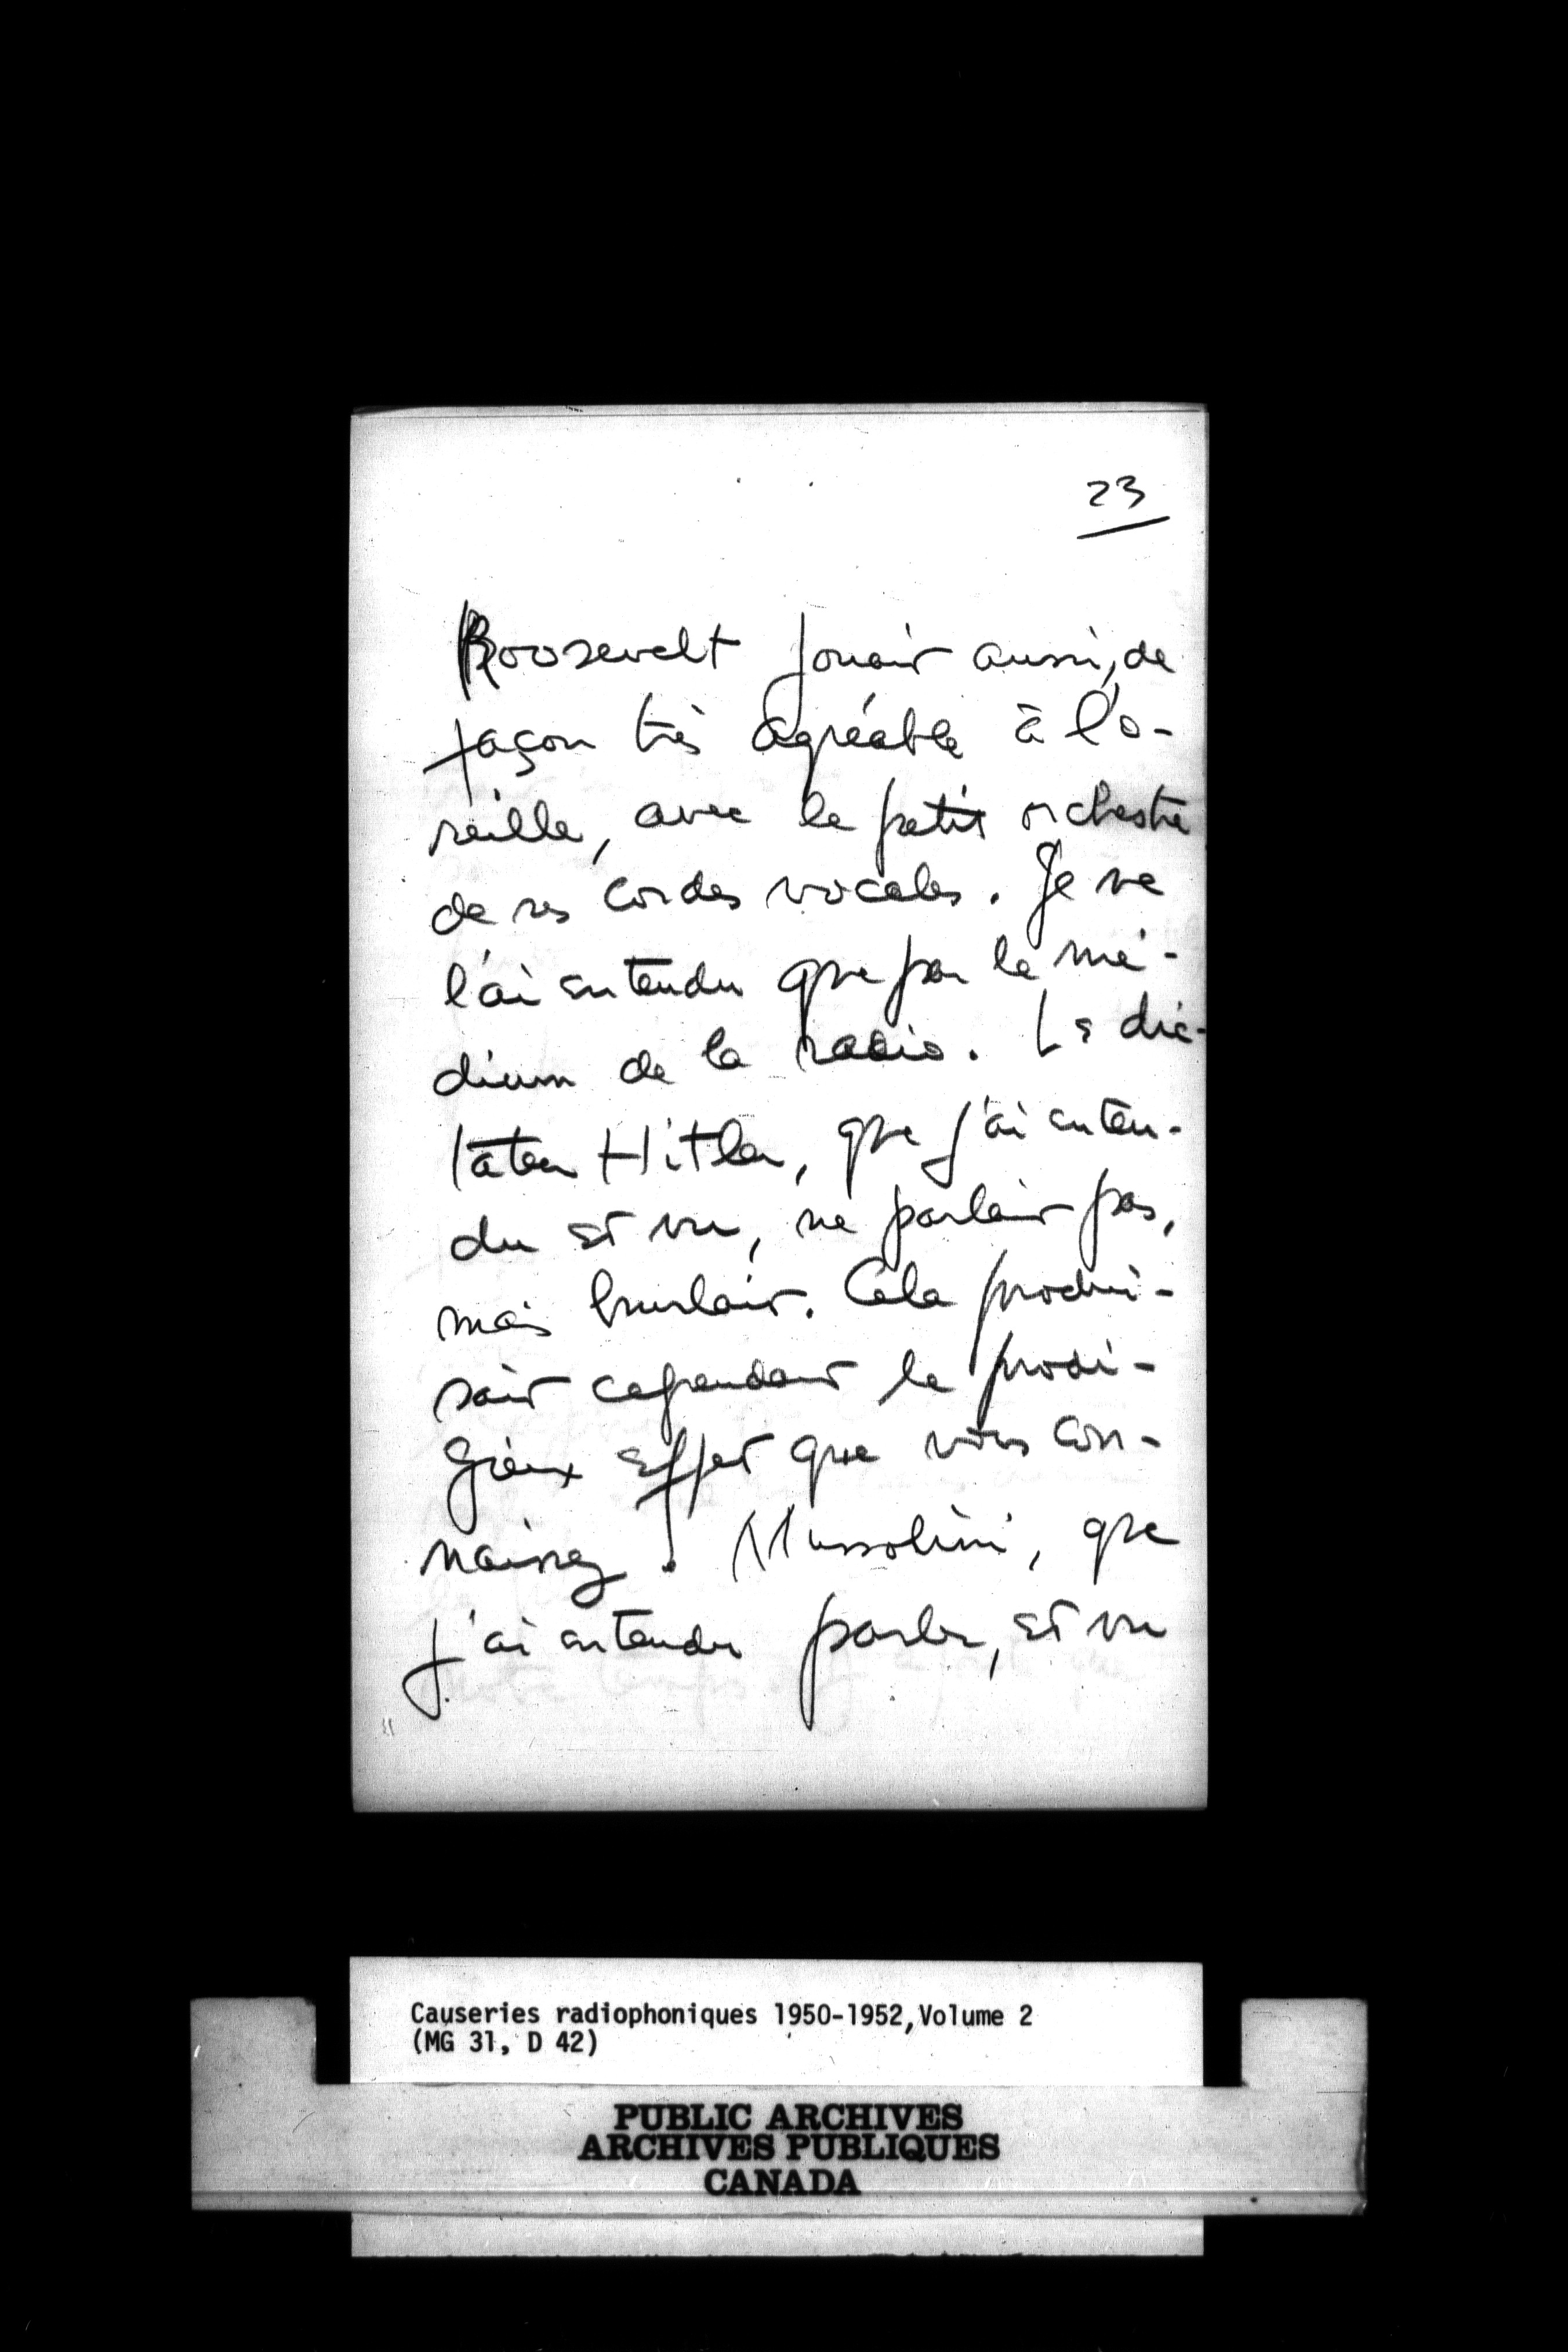 23
Roosevelt jouait aussi, de
façon très agréable à l'o-
reille, avec le petit orchestre
de ses cordes vocales. Je ne
l'ai entendu que par le mé-
dium de la radio. Le dic-
tateur Hitler, que j'ai enten-
du et vu, ne parlait pas,
mais hurlait. Cela produi-
sait cependant le prodi-
gieux effet que vous con-
naissez. Mussolini, que
j'ai entendu parler, et vu
Causeries radiophoniques 1950-1952, Volume 2
(MG 31, D 42)
PUBLIC ARCHIVES
ARCHIVES PUBLIQUES
CANADA